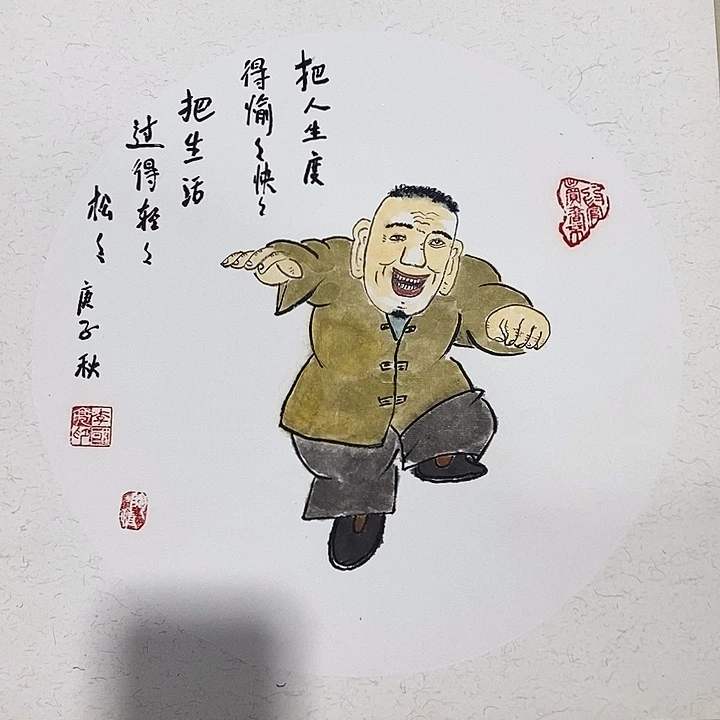 把人生度
得愉々快々
把生活
过得轻々
松々 庚子秋